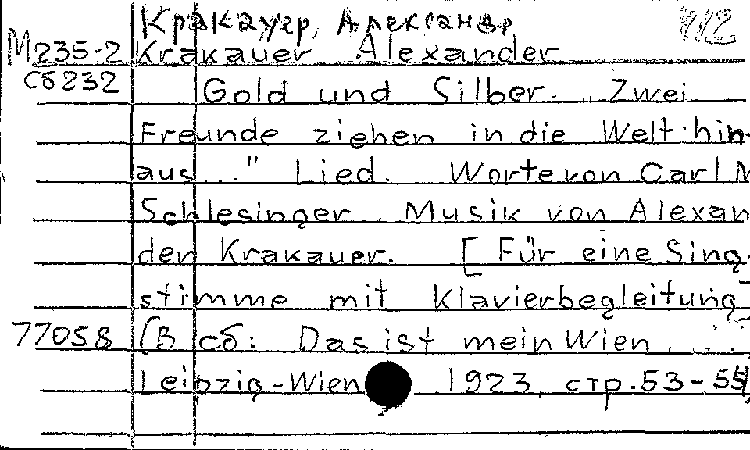 Кракауер, Александр 712
М235-2 Krakauer Alexander
Сб232 Gold und Silber. „Zwei
Freunde ziehen in die Welt hin-
aus..." Lied. Worte von Carl M
Schlesinger. Musik von Alexan-
der Krakauer. [Für eine Sing-
stimme mit Klavierbegleitung]
77058 (В сб: Das ist mein Wien...
Leipzig-Wien 1923, стр. 53-55)